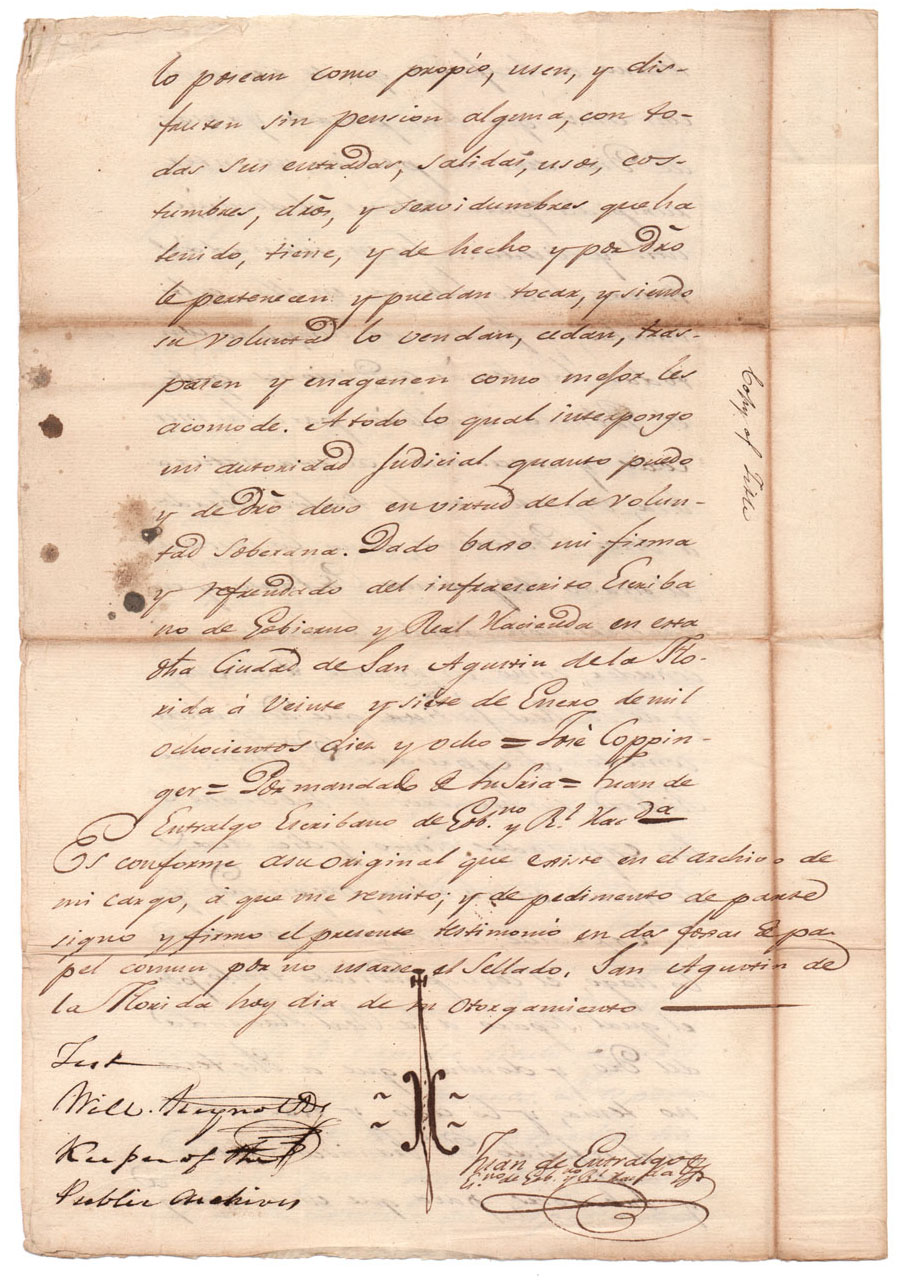 lo posean como propio, usen, y dis-
fruten sin pension alguna, con to-
das sus entradas, salidas, usos, cos-
tumbres, dros, y servidumbres que ha
tenido, tiene, y de hecho y por dro
le pertenecen y puedan tocar, y siendo
su voluntad lo vendan, cedan, tras-
pasen y enagenen como mejor les
acomode. A todo lo qual interpongo
mi autoridad Judicial quanto puedo
y de dro devo en virtud de la volun-
tad soberana. Dado baxo mi firma
y refrendado del infraescrito Escriba
no de Gobierno y Real Hacienda en esta
dha Ciudad de San Agustin de la Flo-
rida á Veinte y siete de Enero de mil
ochocientos diez y ocho = José Coppin-
ger = Por mandado de su Sria = Juan de
Entralgo Escribano de Gob.no y Rl. Hacda
Es conforme a su original que existe en el archivo de
mi cargo, á que me remito; y de pedimento de parte
signo y firmo el presente testimonio en dos fojas de pa-
pel comun por no usarse el Sellado. San Agustin de
la Florida hoy dia de su otorgamiento
Test
Will. Reynolds
Keeper of the
Public Archives
Juan de Entralgo
Eno de Gobno y Rl. Hacda
Copy of Title